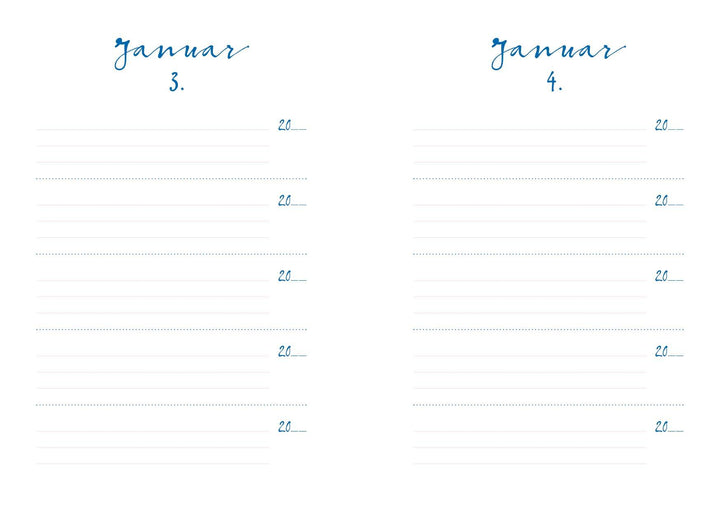 Januar
3.
20__
20__
20__
20__
20__
Januar
4.
20__
20__
20__
20__
20__